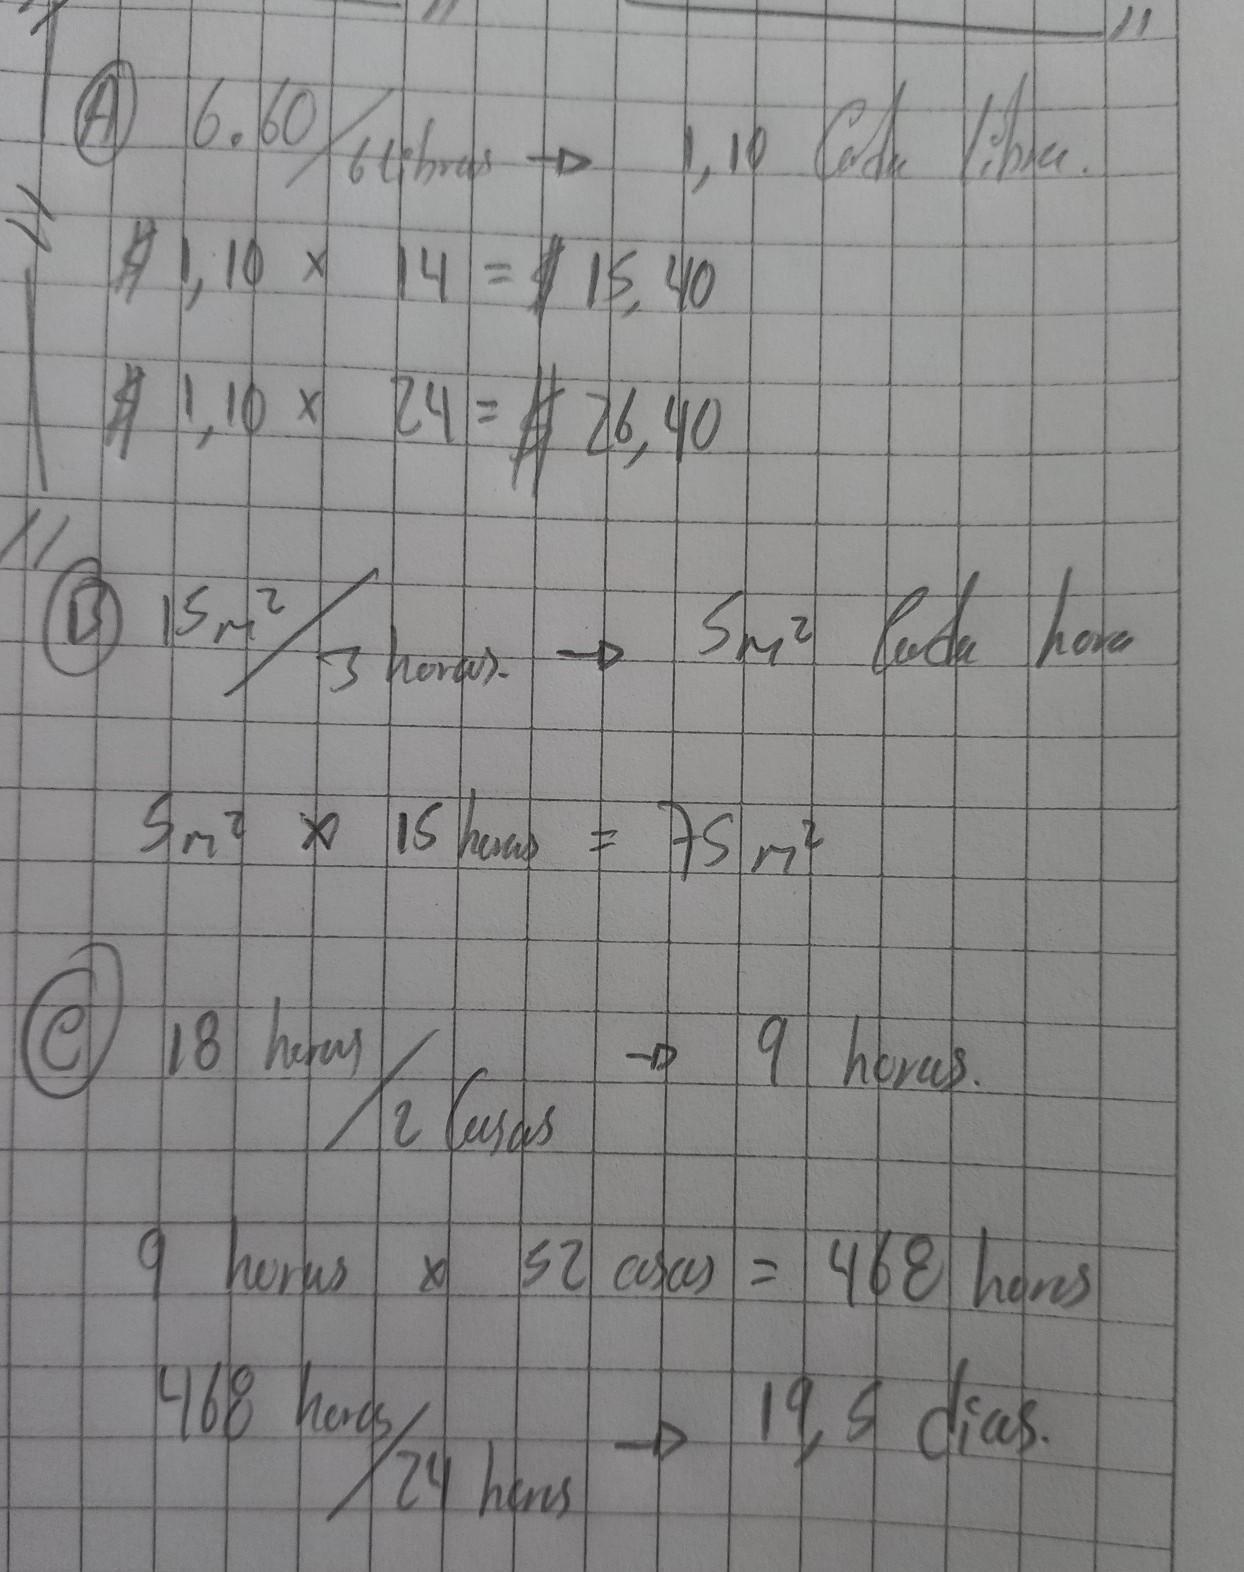 A 6.60/6 Libras → 1,10 Cada libra.
$ 1,10 x 14 = $ 15,40
$ 1,10 x 24 = $ 26,40
B 15m²/3 horas. → 5m² Cada hora
5m² x 15 horas = 75 m²
C 18 horas/2 Casas → 9 horas.
9 horas x 52 casas = 468 horas
468 horas/24 horas → 19,5 dias.